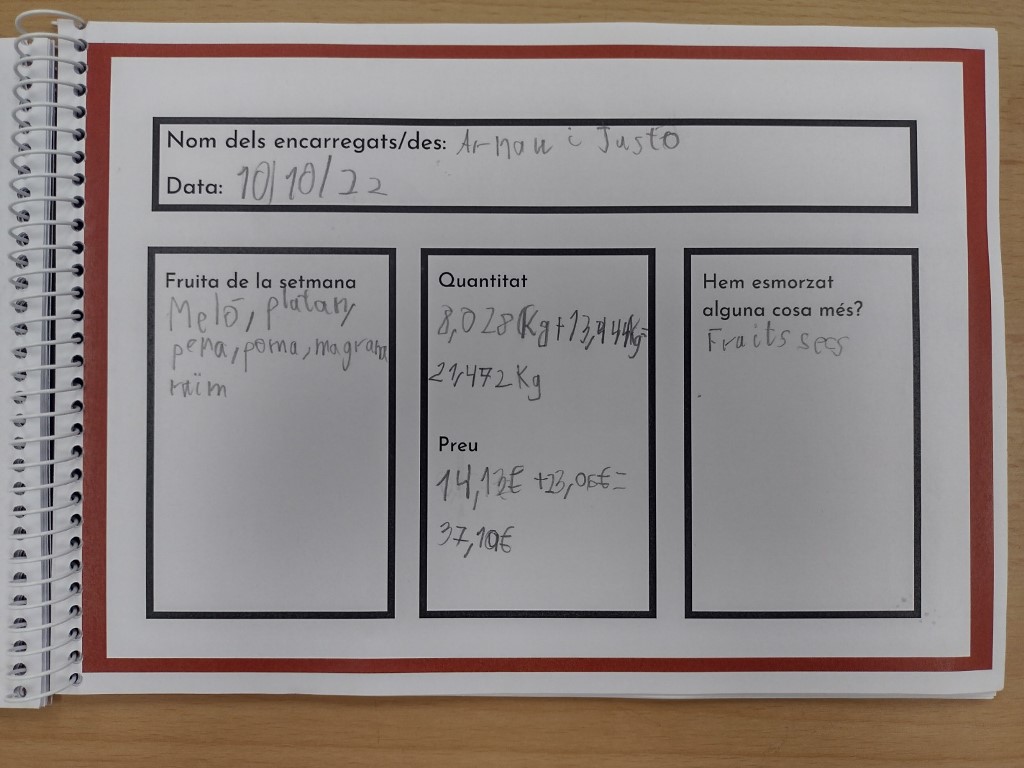 Nom dels encarregats/des: Arnau i Justo
Data: 10/10/22
Fruita de la setmana
Meló, platan,
pera, poma, magrana
raïm
Quantitat
8,028Kg+13,444Kg=
21,472Kg
Preu
14,13€ +23,06€=
37,19€
Hem esmorzat
alguna cosa més?
Fruits secs